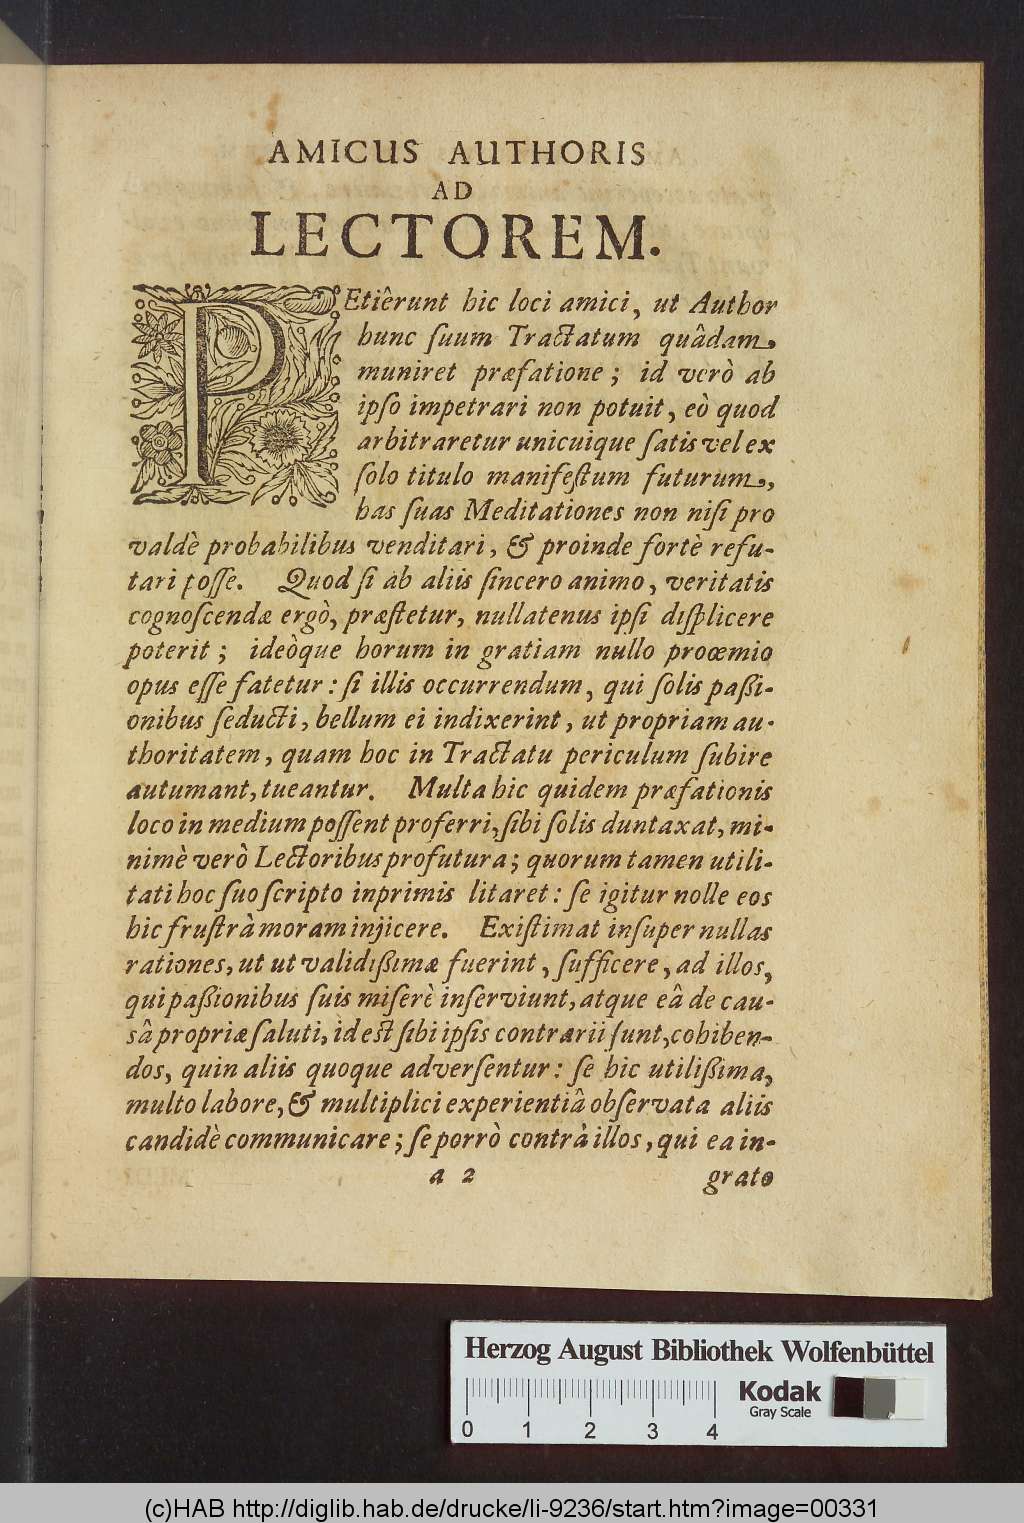 AMICUS AUTHORIS
AD
LECTOREM.
PEtiêrunt hic loci amici, ut Author
hunc ſuum Tractatum quâdam
muniret præfatione; id verò ab
ipſo impetrari non potuit, eò quod
arbitraretur unicuique ſatis vel ex
ſolo titulo manifeſtum futurum,
has ſuas Meditationes non niſi pro
valdè probabilibus venditari, & proinde fortè refu-
tari poſſe. Quod ſi ab aliis ſincero animo, veritatis
cognoſcendæ ergò, præſtetur, nullatenus ipſi diſplicere
poterit; ideòque horum in gratiam nullo proœmio
opus eſſe fatetur: ſi illis occurrendum, qui ſolis paßi-
onibus ſeducti, bellum ei indixerint, ut propriam au-
thoritatem, quam hoc in Tractatu periculum ſubire
autumant, tueantur. Multa hic quidem præfationis
loco in medium poſſent proferri, ſibi ſolis duntaxat, mi-
nimè verò Lectoribus profutura; quorum tamen utili-
tati hoc ſuo ſcripto inprimis litaret: ſe igitur nolle eos
hic fruſtrà moram injicere. Exiſtimat inſuper nullas
rationes, ut ut validißimæ fuerint, ſufficere, ad illos,
qui paßionibus ſuis miſerè inſerviunt, atque eâ de cau-
sâ propriæ ſaluti, id eſt ſibi ipſis contrarii ſunt, cohiben-
dos, quin aliis quoque adverſentur: ſe hic utilißima,
multo labore, & multiplici experientiâ obſervata aliis
candidè communicare; ſe porrò contrà illos, qui ea in-
a 2 grato
Herzog August Bibliothek Wolfenbüttel
Kodak
Gray Scale
0 1 2 3 4
(c)HAB http://diglib.hab.de/drucke/li-9236/start.htm?image=00331